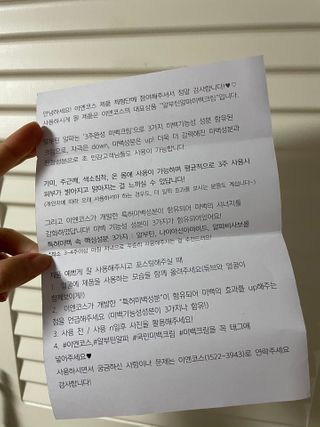 안녕하세요! 이엔코스 제품 체험단에 참여해주셔서 정말 감사합니다!♥♡
사용하시게 될 제품은 이엔코스의 대표상품 "알부틴알파미백크림"입니다.
알부틴 알파는 '3주완성 미백크림'으로 3가지 미백기능성 성분 함유된
크림으로, 자극은 down, 미백효능은 up! 더욱 더 강력해진 미백성분과
진정성분으로 초 민감고객님들도 사용이 가능합니다.
기미, 주근깨, 색소침착, 온 몸에 사용이 가능하며 평균적으로 3주 사용시
피부가 밝아지고 맑아지는 걸 느끼실 수 있답니다!
(개인차에 따라 오래 사용하셔야 하는 경우도, 더 일찍 효과를 보시는 분들도 계십니다~)
그리고 이엔코스가 개발한 특허미백성분이 함유되어 미백의 시너지를
강화하였답니다! 미백 기능성 성분이 3가지가 함유되어있어요!
특허미백 속 핵심성분 3가지 : 알부틴, 나이아신아마이드, 알파비사보롤
*최소 3-4주이상 아침 저녁으로 꾸준히 사용해주시는 걸 추천드려요!
제품 예쁘게 잘 사용해주시고 포스팅해주실 때
1. 얼굴에 제품을 사용하는 모습을 함께 올려주세요!(튜브와 얼굴이
함께보이게!)
2. 이엔코스가 개발한 "특허미백성분"이 함유되어 미백의 효과를 up해주는
점을 언급해주세요. (미백기능성성분이 3가지나 함유!)
3. 사용 전 / 사용 n일후 사진을 활용해주세요!
4. #이엔코스,#알부틴알파 #국민미백크림 #미백크림을 꼭 태그에
넣어주세요♥
사용하시면서 궁금하신 사항이나 문제는 이엔코스(1522-3943)로 연락주세요
감사합니다!